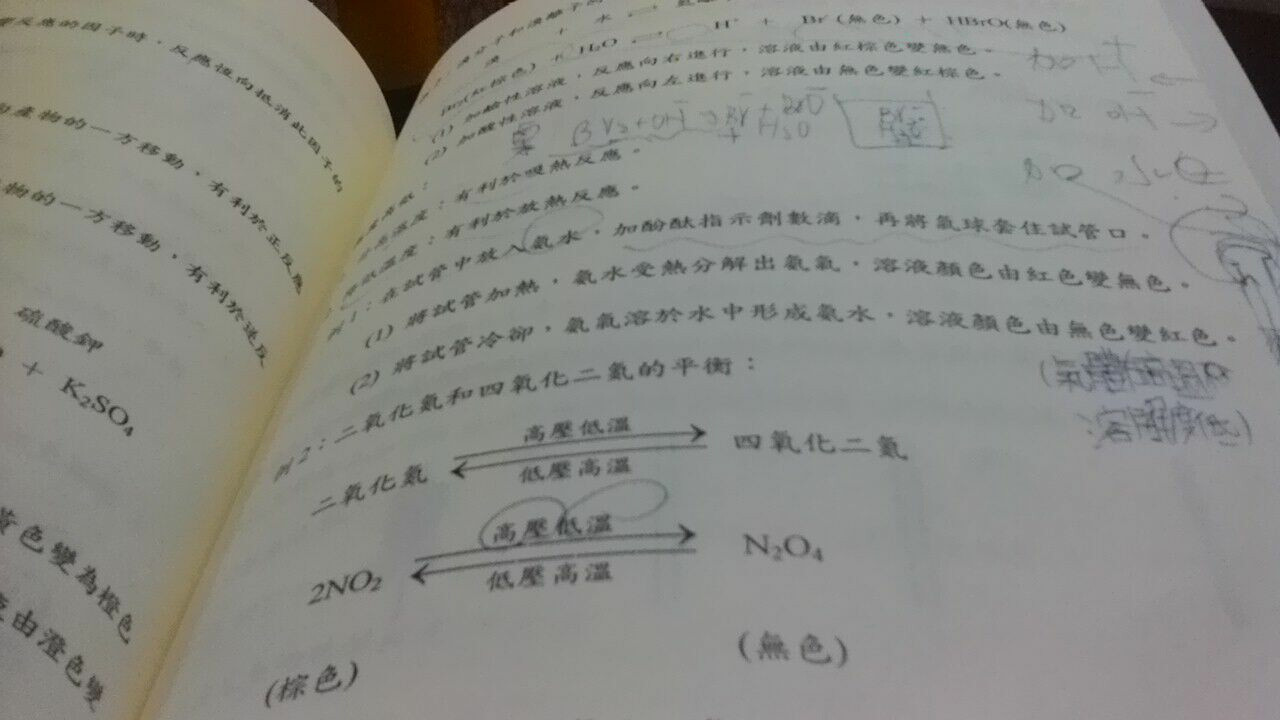 變反應的因子時，反應從向抵消此因子的
向產物的一方移動，有利於正反應
物的一方移動，有利於逆反
硫酸鉀
+ K₂SO₄
黃色變為橙色
由澄色變
溴分子和溴離子的
+ 水 ⇌
溴
Br₂(紅棕色) + H₂O ⇌ H⁺ + Br⁻(無色) + HBrO(無色)
(1) 加鹼性溶液，反應向右進行，溶液由紅棕色變無色。
(2) 加酸性溶液，反應向左進行，溶液由無色變紅棕色。
加 H⁺ ←
加 OH⁻ →
Br₂ + OH⁻ → Br⁻ + BrO⁻
+ H₂O
溫度：有利於吸熱反應。
降低溫度：有利於放熱反應。
例1：在試管中放入氨水，加酚酞指示劑數滴，再將氣球套住試管口。
(1) 將試管加熱，氨水受熱分解出氨氣，溶液顏色由紅色變無色。
(2) 將試管冷卻，氨氣溶於水中形成氨水，溶液顏色由無色變紅色。
溶解度低)
例2：二氧化氮和四氧化二氮的平衡：
高壓低溫
二氧化氮 ⇌ 四氧化二氮
低壓高溫
高壓低溫
2NO₂ ⇌ N₂O₄
低壓高溫
(棕色) (無色)